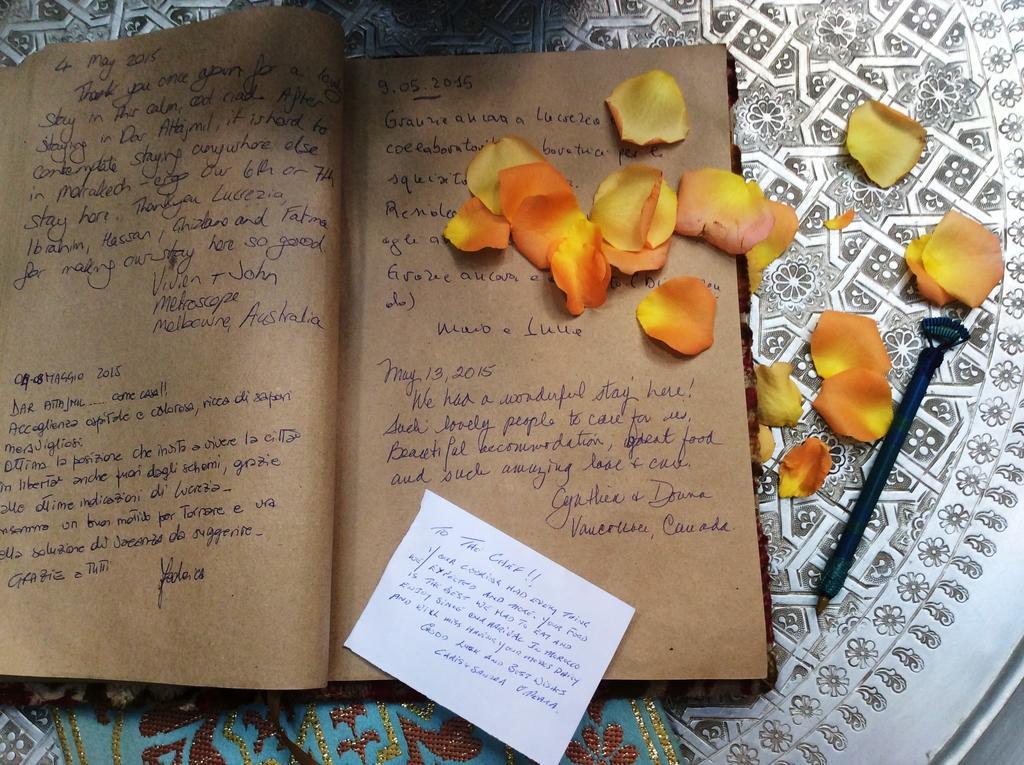 4 May 2015
Thank you once again for a
stay in this calm, cool riad. After
staying in Dar Attajmil, it is hard to
contemplate staying anywhere else
in Marrakech - ergo our 6th or 7th
stay here. Thankyou Lucrezia,
Ibrahim, Hassan, Ghizlane and Fatima
for making our stay here so good.
Vivien + John
Metroscope
Melbourne, Australia
MAGGIO 2015
DAR ATTAJMIL..... come casa!!
Accoglienza ospitale e calorosa, ricca di sapori
meravigliosi
Ottima la posizione che invita a vivere la città
in libertà anche fuori dagli schemi, grazie
alle ottime indicazioni di Lucrezia_
un buon motivo per tornare e una
alla soluzione di vacanza da suggerire_
GRAZIE a TUTTI
9.05.2015
Grazie ancora a Lucrezia
collaboratori
squisita
Grazie ancora e
do)
May, 13, 2015
We had a wonderful stay here!
Such lovely people to care for us.
Beautiful accommodation, great food
and such amazing love & care.
Cynthia & Donna
Vancouver, Canada.
TO THE CHEF!!
YOUR COOKING HAD EVERY THING
WE EXPECTED AND MORE. YOUR FOOD
IS THE BEST WE HAD TO EAT AND
ENJOY SINCE OUR ARRIVAL IN MOROCCO
AND WILL MISS HAVING YOUR MEALS DAILY
GOOD LUCK AND BEST WISHES
CHRIS & SANDRA O'MEARA.